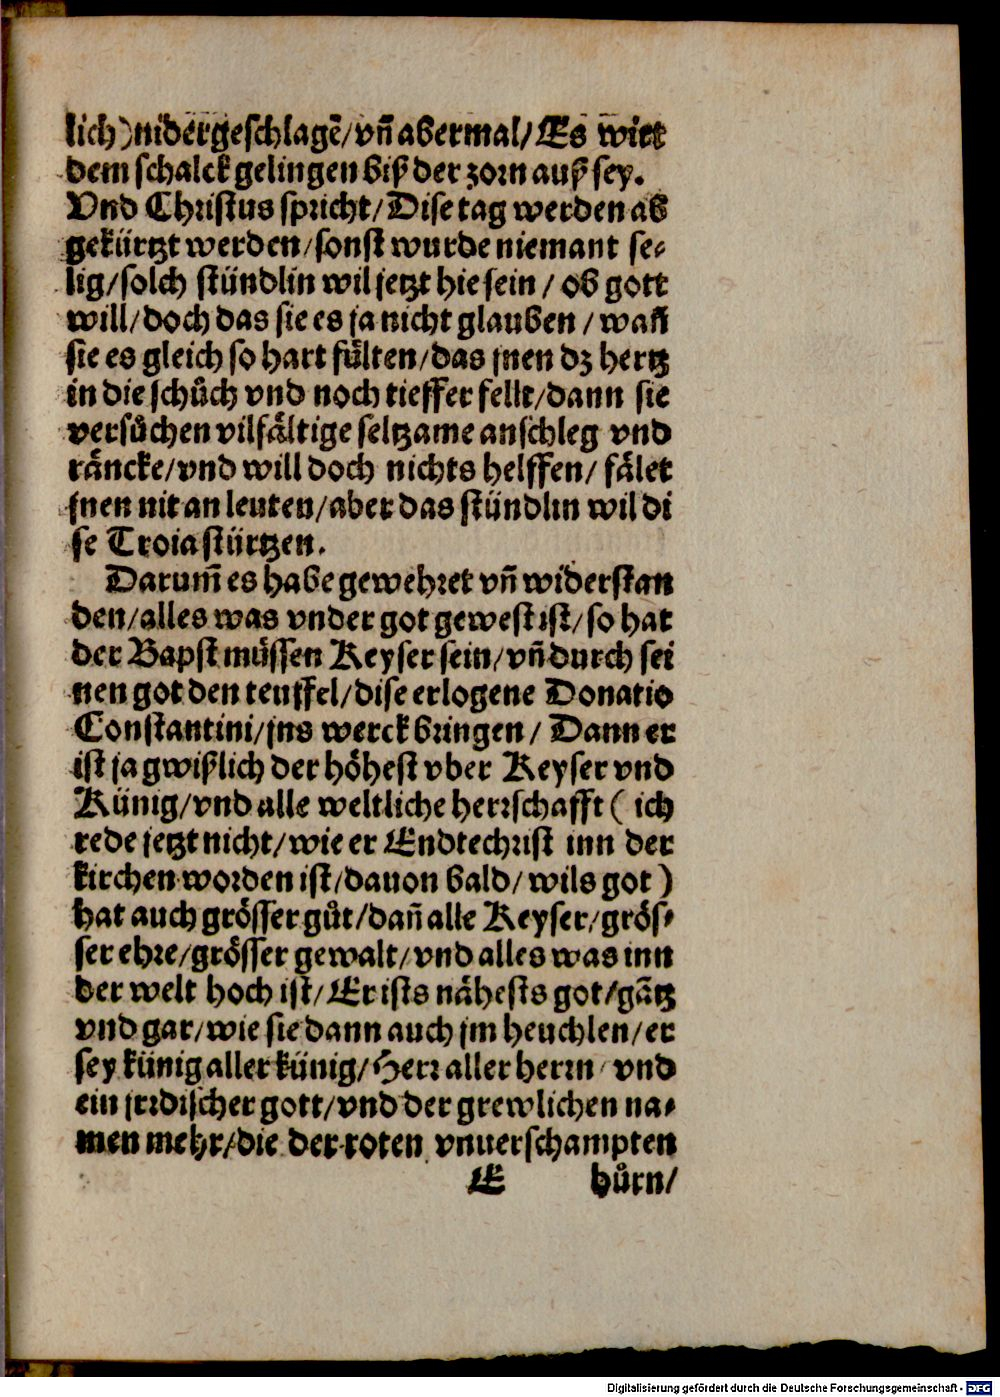 lich) nidergeschlagē/vñ abermal/Es wirt
dem schalck gelingen biß der zorn auß sey.
Vnd Christus spricht/Dise tag werden ab
gekürtzt werden/sonst wurde niemant se-
lig/solch stündlin wil jetzt hie sein/ ob gott
will/doch das sie es ja nicht glauben/wañ
sie es gleich so hart fülten/das jnen dz hertz
in die schůch vnd noch tieffer fellt/dann sie
versůchen vilfältige seltzame anschleg vnd
räncke/vnd will doch nichts helffen/ fälet
jnen nit an leuten/aber das stündlin wil di
se Troia stürtzen.
Darum̃ es habe gewehret vñ widerstan
den/alles was vnder got gewest ist/so hat
der Bapst müssen Keyser sein/vñ durch sei
nen got den teuffel/dise erlogene Donatio
Constantini/jns werck bringen/ Dann er
ist ja gwißlich der höhest vber Keyser vnd
Künig/vnd alle weltliche herrschafft ( ich
rede jetzt nicht/wie er Endtechrist inn der
kirchen worden ist/dauon bald/ wils got )
hat auch grösser gůt/dañ alle Keyser/grös-
ser ehre/grösser gewalt/vnd alles was inn
der welt hoch ist/Er ists nähests got/gātz
vnd gar/wie sie dann auch jm heuchlen/er
sey künig aller künig/Herr aller herrn/ vnd
ein jrrdischer gott/vnd der grewlichen na-
men mehr/die der roten vnuerschampten
E hůrn/
Digitalisierung gefördert durch die Deutsche Forschungsgemeinschaft - DFG